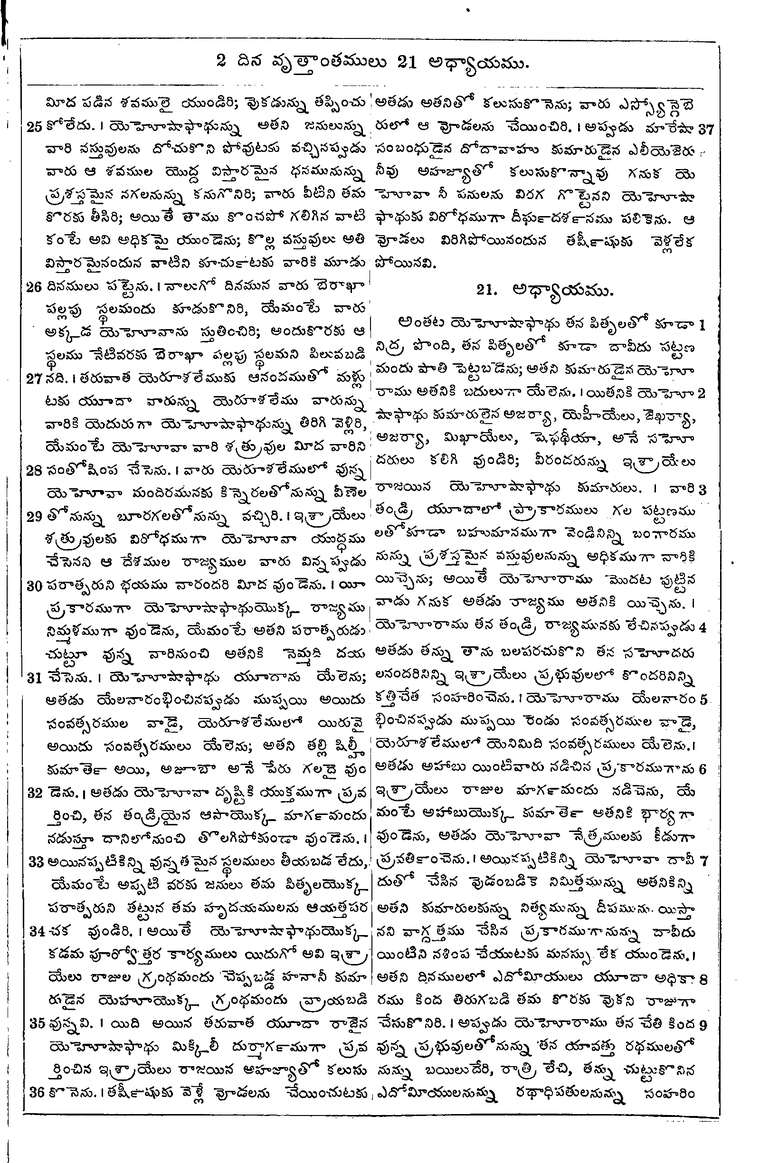 2 దిన వృత్తాంతములు 21 అధ్యాయము.
మీద పడిన శవములై యుండిరి; వుకడున్ను తప్పించు
25 కోలేదు. । యెహోషాఫాథున్ను అతని జనులున్ను
వారి వస్తువులను దోచుకొని పోవుటకు వచ్చినప్పుడు
వారు ఆ శవముల యొద్ద విస్తారమైన ధనమునున్ను
ప్రశస్తమైన నగలనున్ను కనుగొనిరి; వారు వీటిని తమ
కొరకు తీసిరి; అయితే తాము కొంచపో గలిగిన వాటి
కంటే అవి అధికమై యుండెను; కొల్ల వస్తువులు అతి
విస్తారమైనందున వాటిని కూచుకాటకు వారికి మూడు
26 దినములు పట్టెను. । నాలుగో దినమున వారు బెరాఖా
పల్లపు స్థలమందు కూడుకొనిరి, యేమంటే వారు
అక్కడ యెహోవాను స్తుతించిరి; అందుకొరకు ఆ
స్థలము నేటివరకు బెరాఖా పల్లపు స్థలమని పిలువబడి
27 నది. । తరువాత యెరూశలేముకు ఆనందముతో మళ్లు
టకు యూదా వారున్ను యెరూశలేము వారున్ను
వారికి యెదురుగా యెహోషాఫాథున్ను తిరిగి వెళ్లిరి,
యేమంటే యెహోవా వారి శత్రువుల మీద వారిని
28 సంతోషింప చేసెను. । వారు యెరూశలేములో వున్న
యెహోవా మందిరమునకు కిన్నెరలతోనున్ను వీణెల
29 తోనున్ను బూరగలతోనున్ను వచ్చిరి. । ఇశ్రాయేలు
శత్రువులకు విరోధముగా యెహోవా యుద్ధము
చేసెనని ఆ దేశముల రాజ్యముల వారు విన్నప్పుడు
30 పరాత్పరుని భయము వారందరి మీద వుండెను. । యీ
ప్రకారముగా యెహోషాఫాథుయొక్క రాజ్యము
నిమ్మళముగా వుండెను, యేమంటే అతని పరాత్పరుడు
చుట్టూ వున్న వారినుంచి అతనికి నెమ్మది దయ
31 చేసెను. । యెహోషాఫాథు యూదాను యేలెను;
అతడు యేలనారంభించినప్పుడు ముప్పయి అయిదు
సంవత్సరముల వాడై, యెరూశలేములో యిరువై
అయిదు సంవత్సరములు యేలెను; అతని తల్లి షిల్హీ
కుమాతెకా అయి, అజూబా అనే పేరు గలదై వుం
32 డెను. । అతడు యెహోవా దృష్టికి యుక్తముగా ప్రవ
ర్తించి, తన తండ్రియైన ఆసాయొక్క మాగకామందు
నడుస్తూ దానిలోనుంచి తొలగిపోకుండా వుండెను. ।
33 అయినప్పటికిన్ని వున్నతమైన స్థలములు తీయబడ లేదు,
యేమంటే అప్పటి వరకు జనులు తమ పితృలయొక్క
పరాత్పరుని తట్టున తమ హృదయములను ఆయత్తపర
34 చక వుండిరి. । అయితే యెహోషాఫాథుయొక్క
కడమ పూర్వోత్తర కార్యములు యిదుగో అవి ఇశ్రా
యేలు రాజుల గ్రంథమందు చెప్పబడ్డ హనానీ కుమా
రుడైన యెహూయొక్క గ్రంథమందు వ్రాయబడి
35 వున్నవి. । యిది అయిన తరువాత యూదా రాజైన
యెహోషాఫాథు మిక్కిలీ దుర్మాగకాముగా ప్రవ
ర్తించిన ఇశ్రాయేలు రాజయిన అహజ్యాతో కలుసు
36 కొనెను. । తషీకాషుకు వెళ్లే వోడలను చేయించుటకు
అతడు అతనితో కలుసుకొనెను; వారు ఎస్స్యోన్గెబె
రులో ఆ వోడలను చేయించిరి. । అప్పుడు మారేషా 37
సంబంధుడైన దోదావాహు కుమారుడైన ఎలీయెజెరు
నీవు అహజ్యాతో కలుసుకొన్నావు గనుక యె
హోవా నీ పనులను విరగ గొట్టెనని యెహోషా
ఫాథుకు విరోధముగా దీఘకాదశకానము పలికెను. ఆ
వోడలు విరిగిపోయినందున తషీకాషుకు వెళ్లలేక
పోయినవి.
21. అధ్యాయము.
అంతట యెహోషాఫాథు తన పితృలతో కూడా 1
నిద్ర పొంది, తన పితృలతో కూడా దావీదు పట్టణ
మందు పాతి పెట్టబడెను; అతని కుమారుడైన యెహో
రాము అతనికి బదులుగా యేలెను. । యితనికి యెహో 2
షాఫాథు కుమారులైన అజర్యా, యెహీయేలు, జెఖర్యా,
అజర్యా, మిఖాయేలు, షెఫథీయా, అనే సహో
దరులు కలిగి వుండిరి; వీరందరున్ను ఇశ్రాయేలు
రాజయిన యెహోషాఫాథు కుమారులు. । వారి 3
తండ్రి యూదాలో ప్రాకారములు గల పట్టణము
లతోకూడా బహుమానముగా వెండినిన్ని బంగారము
నున్ను ప్రశస్తమైన వస్తువులనున్ను అధికముగా వారికి
యిచ్చెను; అయితే యెహోరాము మొదట పుట్టిన
వాడు గనుక అతడు రాజ్యము అతనికి యిచ్చెను. ।
యెహోరాము తన తండ్రి రాజ్యమునకు లేచినప్పుడు 4
అతడు తన్ను తాను బలపరచుకొని తన సహోదరు
లనందరినిన్ని ఇశ్రాయేలు ప్రభువులలో కొందరినిన్ని
కత్తిచేత సంహరించెను. । యెహోరాము యేలనారం 5
భించినప్పుడు ముప్పయి రెండు సంవత్సరముల వాడై,
యెరూశలేములో యెనిమిది సంవత్సరములు యేలెను. ।
అతడు అహాబు యింటివారు నడిచిన ప్రకారముగాను 6
ఇశ్రాయేలు రాజుల మాగకామందు నడిచెను, యే
మంటే అహాబుయొక్క కుమాతెకా అతనికి భార్యగా
వుండెను, అతడు యెహోవా నేత్రములకు కీడుగా
ప్రవతికాంచెను. । అయినప్పటికిన్ని యెహోవా దావీ 7
దుతో చేసిన వుడంబడికె నిమిత్తమున్ను అతనికిన్ని
అతని కుమారులకున్ను నిత్యమున్ను దీపమును యిస్తా
నని వాగ్దత్తము చేసిన ప్రకారముగానున్ను దావీదు
యింటిని నశింప చేయుటకు మనస్సు లేక యుండెను. ।
అతని దినములలో ఎదోమీయులు యూదా అధికా 8
రము కింద తిరుగబడి తమ కొరకు వుకని రాజుగా
చేసుకొనిరి. । అప్పుడు యెహోరాము తన చేతి కింద 9
వున్న ప్రభువులతోనున్ను తన యావత్తు రథములతో
నున్ను బయిలుదేరి, రాత్రి లేచి, తన్ను చుట్టుకొనిన
ఎదోమీయులనున్ను రథాధిపతులనున్ను సంహరిం